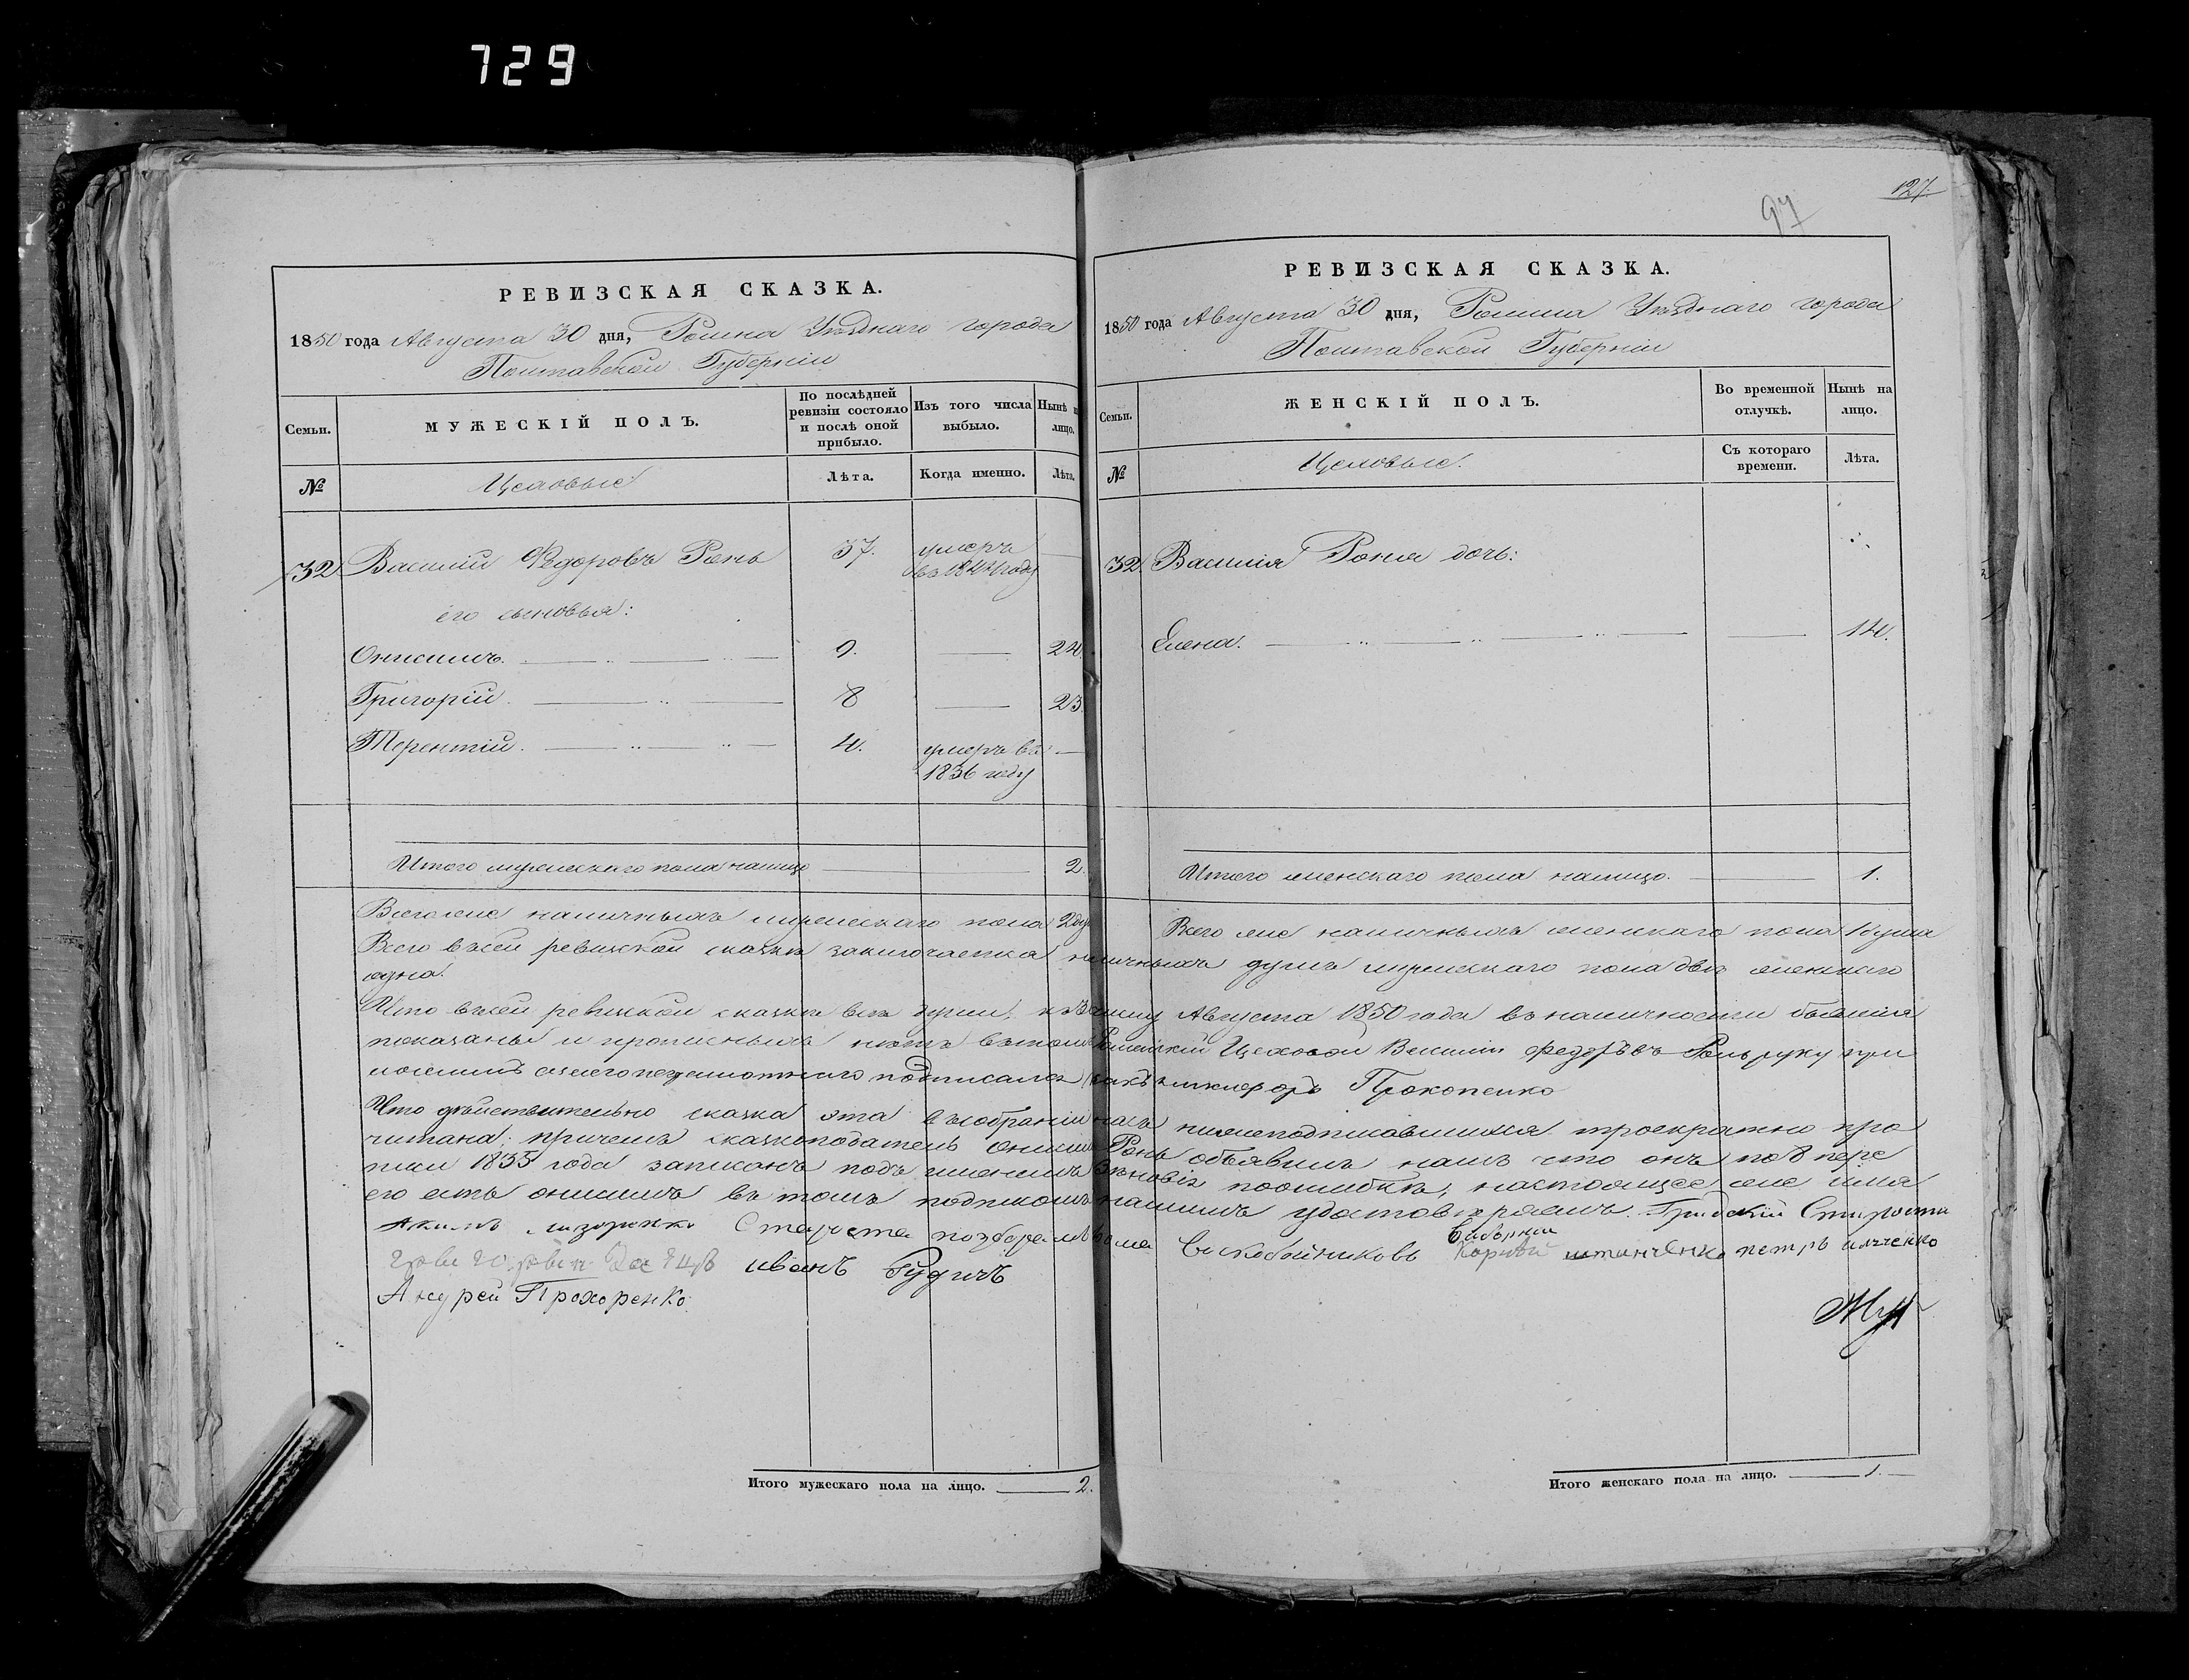 729
127.
97
РЕВИЗСКАЯ СКАЗКА.
1850 года Августа 30 дня, Ромна Уѣзднаго города
Полтавской Губерніи
Семьи.
МУЖЕСКІЙ ПОЛЪ.
По послѣдней ревизіи состояло и послѣ оной прибыло.
Изъ того числа выбыло.
Нынѣ
лицо.
№
Цеховые
Лѣта.
Когда именно.
Лѣта.
32 Василій Федоровъ Рень 37. умеръ
въ 1844 году
его сыновья:
Онисимъ. 9. 24.
Григорій. 8 23.
Терентій. 4. умеръ въ
1836 году
Итого мужескаго пола налицо 2.
РЕВИЗСКАЯ СКАЗКА.
1850 года Августа 30 дня, Ромна Уѣзднаго города
Полтавской Губерніи
Семьи.
ЖЕНСКІЙ ПОЛЪ.
Во временной отлучкѣ.
Нынѣ на лицо.
№
Цеховые.
Съ котораго времени.
Лѣта.
32. Василія Роня дочь:
Елена. 14.
Итого женскаго пола налицо. 1.
Всего же наличныхъ мужескаго пола 2 ду
Всего же наличныхъ женскаго пола 1 душа
Всего въ сей ревизской сказкѣ заключается наличныхъ душъ мужескаго пола двѣ женскаго
одна.
Что въ сей ревизской сказкѣ всѣ души, къ числу Августа 1850 года въ наличности бывшія
показаны и прописныхъ нѣтъ въ томъ Роменскій Цеховой Василій Федоръвъ Рень руку при
подписался Прокопенко
Что дѣйствительно сказка эта въ собраніи насъ нижеподписавшихся троекратно про
читана; причемъ сказкоподатель Онисимъ Ронь объявилъ намъ что онъ по 8 пере
писи 1835 года записанъ подъ именемъ Зѣновія по ошибкѣ, настоящее же имя
его есть Онисимъ въ томъ подписомъ нашимъ удостовѣряемъ. Градскій Староста
Акимъ Староста
Выборный
петръ илченко
иванъ Рудичъ
Андрей Прохоренко.
Итого мужескаго пола на лицо. 2.
Итого женскаго пола на лицо. 1.